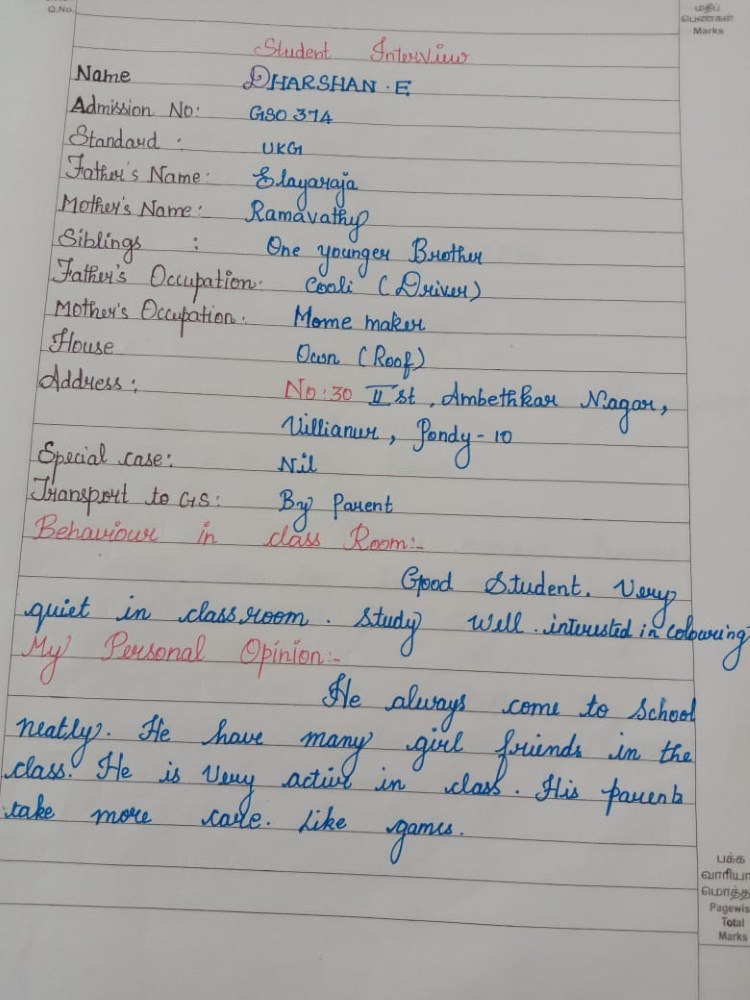 Q.No.
மதிப்
பெண்கள்
Marks
Student Interview
Name DHARSHAN . E
Admission No: GSO 374
Standard : UKG
Father's Name : Elayaraja
Mother's Name : Ramavathy
Siblings : One younger Brother
Father's Occupation: Cooli (Driver)
Mother's Occupation: Home maker
House Own (Roof)
Address : No : 30 II st , Ambethkar Nagar,
Villianur , Pondy - 10
Special case: Nil
Transport to GS : By Parent
Behaviour in class Room:-
Good Student. Very
quiet in classroom . Study well . interested in colouring
My Personal Opinion:-
He always come to School
neatly. He have many girl friends in the
class. He is very active in class . His parents
take more care. Like games.
பக்க
வாரியா
மொத்த
Pagewis
Total
Marks